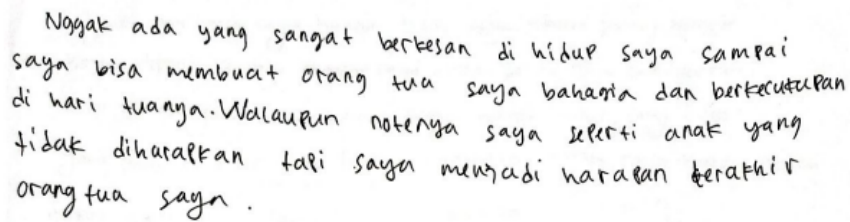 Nggak ada yang sangat berkesan di hidup saya sampai
saya bisa membuat orang tua saya bahagia dan berkecutupan
di hari tuanya. Walaupun notenya saya seperti anak yang
tidak diharapkan tapi saya menjadi harapan terakhir
orang tua saya.